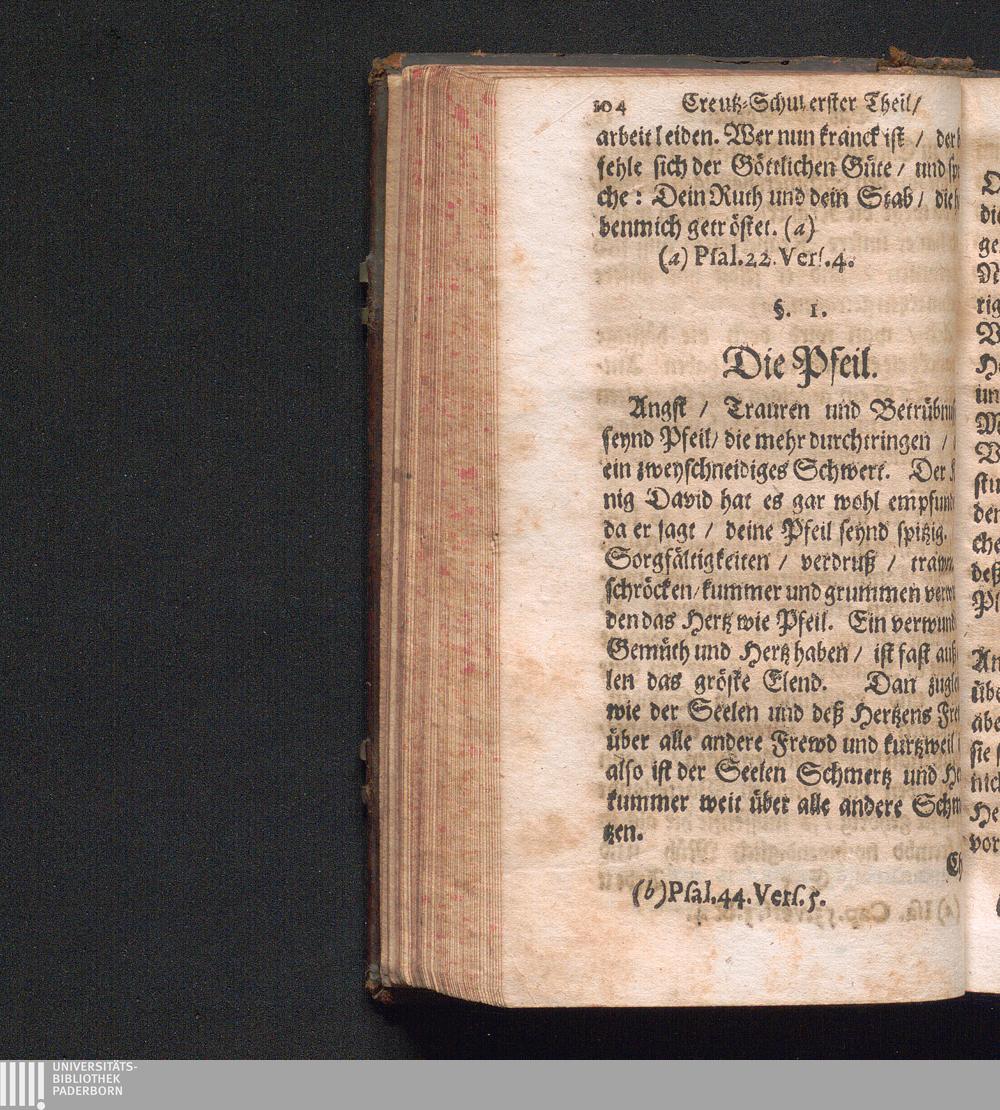 104 Creutz-Schul erster Theil/
arbeit leiden. Wer nun kranck ist / der
fehle sich der Göttlichen Güte / und
che: Dein Ruth und dein Stab / die
ben mich getröstet. (a)
(a) Psal. 22. Vers. 4.
§. 1.
Die Pfeil.
Angst / Trauren und
seynd Pfeil/ die mehr durchtringen /
ein zweyschneidiges Schwert. Der
nig David hat es gar wohl
da er sagt / deine Pfeil seynd spitzig.
Sorgfältigkeiten / verdruß /
schröcken/ kummer und grummen
den das Hertz wie Pfeil. Ein
Gemüth und Hertz haben / ist fast
len das gröste Elend. Dan
wie der Seelen und deß Hertzens
über alle andere Frewd und kurtzweil
also ist der Seelen Schmertz und
kummer weit über alle andere
tzen.
(b) Psal. 44. Vers. 5.
die
ge
rig
un
den
che
deß
An
übe
abe
sie
nich
He
vor
UNIVERSITÄTS-
BIBLIOTHEK
PADERBORN